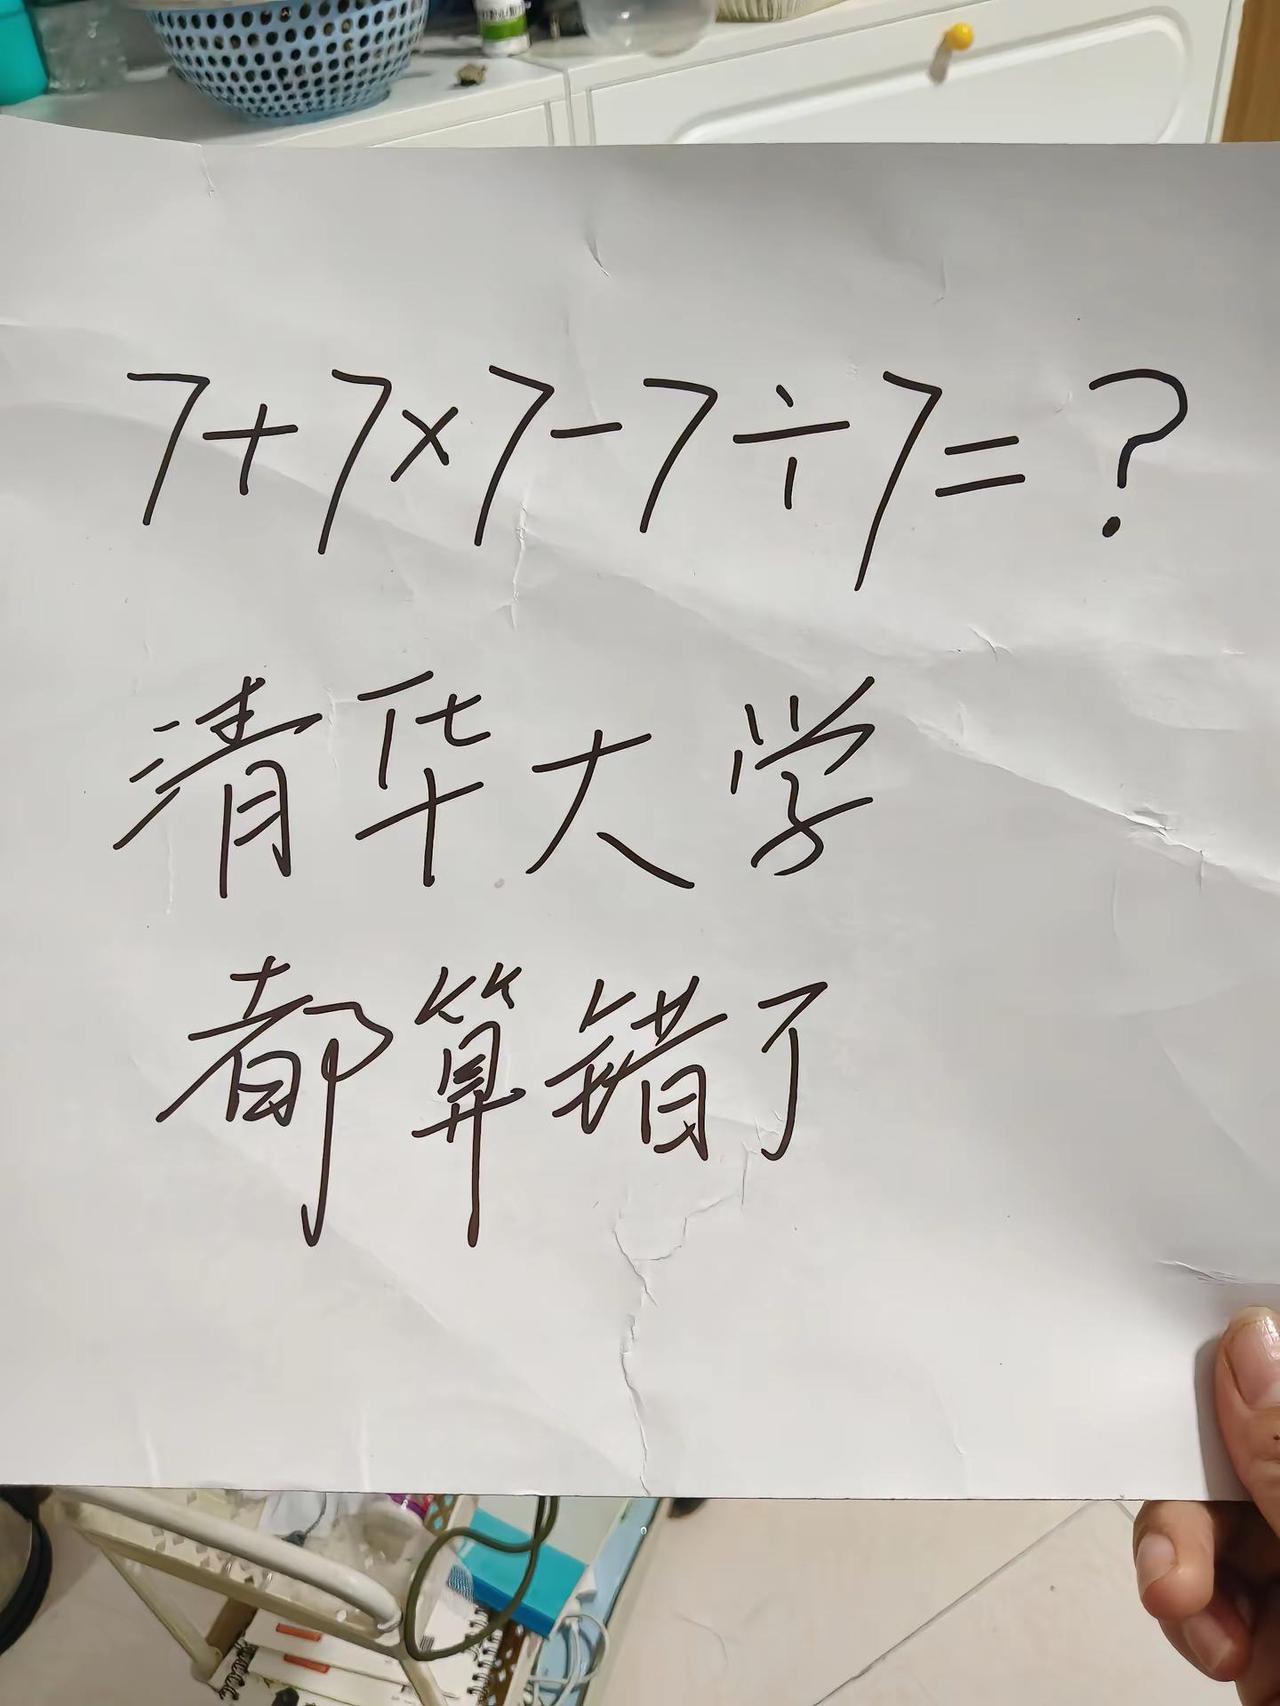 7+7×7-7÷7=?
清华大学
都算错了